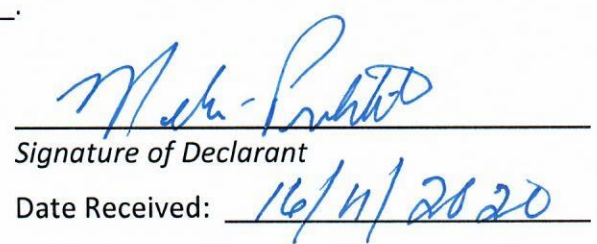 Signature of Declarant
Date Received: 16/11/2020